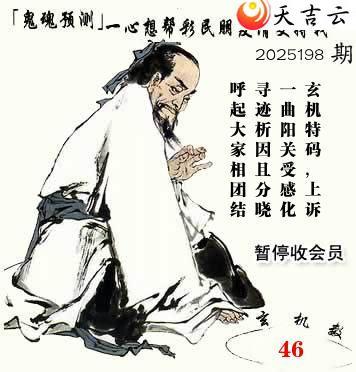 「鬼魂预测」一心想帮彩民朋
天吉云
2025198 期
玄机特码，上诉
一曲阳关受感化
寻迹析因且分晓
呼起大家相团结
暂停收会员
玄机数
46